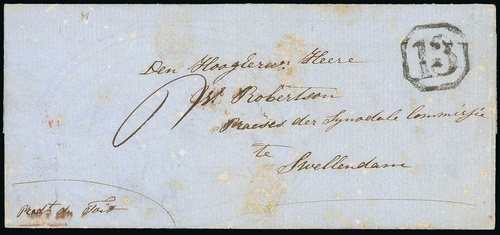 13
Den Hoogleerw. Heere
W. Robertson
Praeses der Synodale Commissie
te
Swellendam
Predt. du Toit